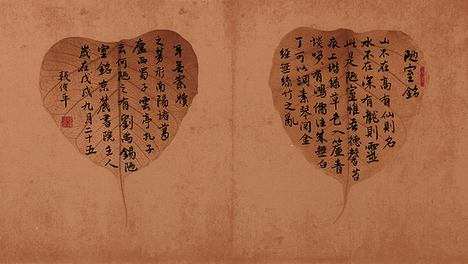 陋室銘
山不在高有仙則名
水不在深有龍則靈
斯是陋室惟吾德馨苔
痕上堦綠草色入簾青
談笑有鴻儒往來無白
丁可以調素琴閱金
經無絲竹之亂
耳無案牘
之勞形南陽諸葛
廬西蜀子雲亭孔子
云何陋之有劉禹錫陋
室銘京農書院主人
歲在戊戌九月二十五